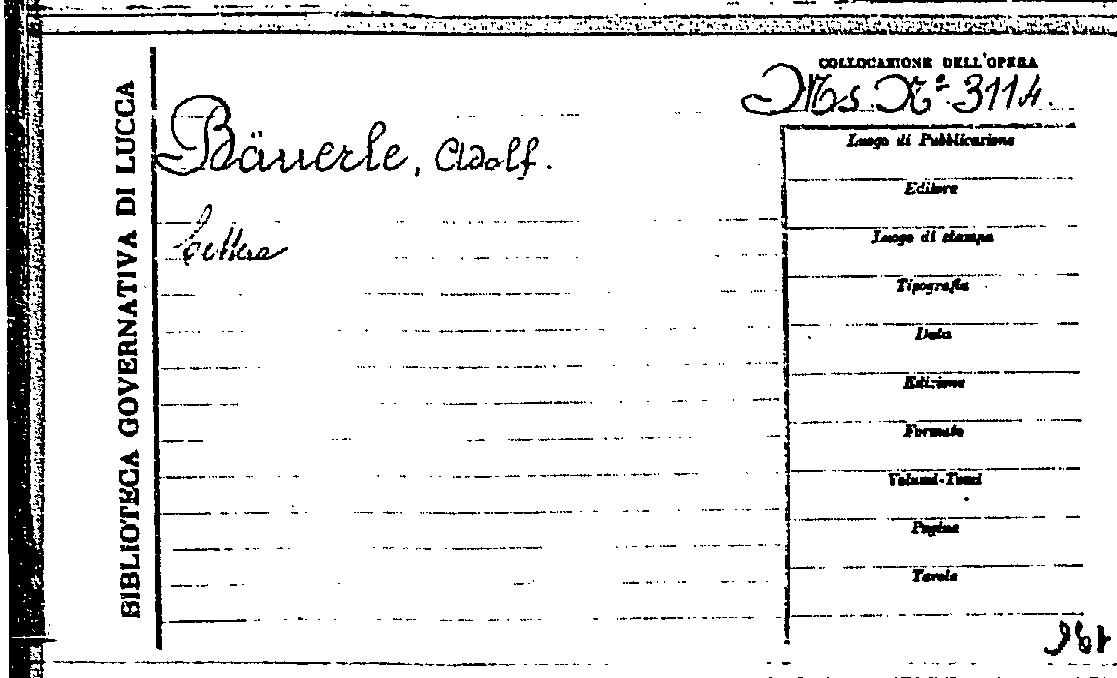 BIBLIOTECA GOVERNATIVA DI LUCCA
COLLOCAZIONE DELL'OPERA
Ms. Nº 3114.
Bäuerle, Adolf.
Lettera
Luogo di Pubblicazione
Editore
Luogo di stampa
Tipografia
Data
Edizione
Formato
Volumi-Tomi
Pagine
Tavole